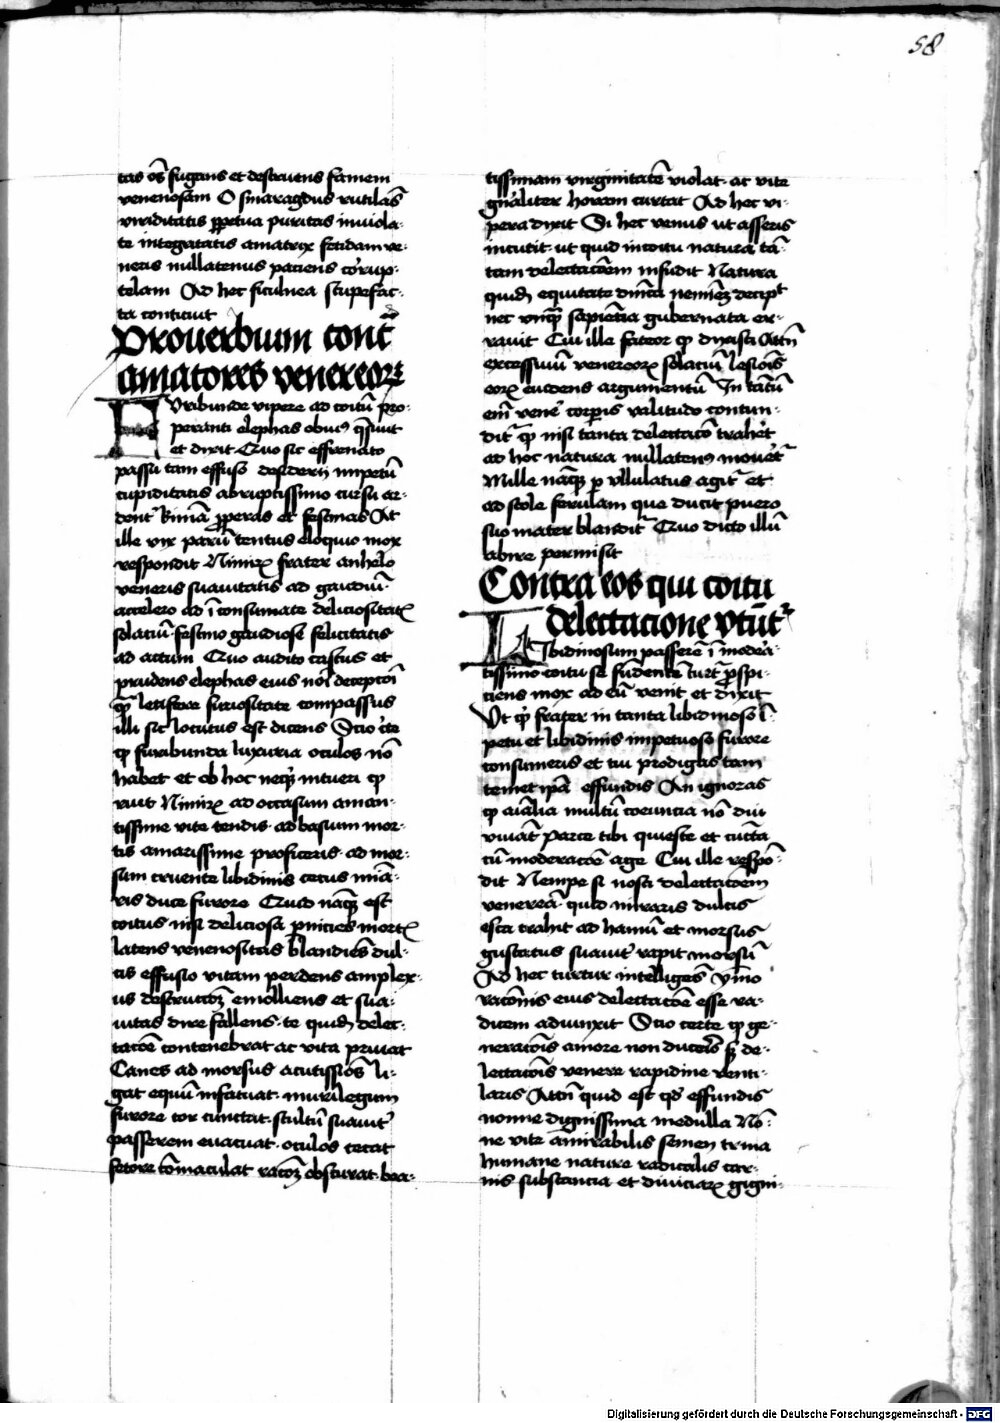 58
tas os̄ fugans et destruens famem
venenosam O smaragdus rutilās
viriditatis ꝑpetua puritas inuiola-
te integritatis amatrix fetidam ve-
neris nullatenus paciens corrup-
telam Ad hec ficulnea stupefac-
ta conticuit
Prouerbium cont̄
amatores venereoꝝ
Furibunde vipere ad coitū pro-
peranti elephas obiꝰ q̄siuit
et dixit Quo sic effrenato
passu tam effuso desiderij impetū
cupiditatis abruptissimo cursu ar-
dent᷑ ꝓperas et festinas At
ille vix parū tentus eloquio mox
respondit Nimirꝝ frater anhelo
veneris suauitatis ad gaudiū
accelero ad ī consumate deliciositatꝭ
solaciū festino gaudiose felicitatis
ad actum Quo audito castus et
prudens elephas eius
letifere furiositate compassus
illi sic locutus est dicens Scio c̄te
ꝙ furibunda luxuria oculos nō
habet et ob hoc neqꝫ intueri ꝙ
ruit Nimirꝝ ad occasum aman-
tissime vite tendis ad basium mor-
tis amarissime proficeris ad mor-
sum cruente libidinis
duce furore Quid nāqꝫ est
coitus nisi deliciosa ꝑnicies mortꝭ
latens venenositas blandiēs dul-
cis effusio vitam perdens amplex-
us destructōꝫ emolliens et sua-
uitas dire fallens te quidē delec-
tacōe contenebrat ac vita priuat
Canes ad morsus acutissiōs li-
gat equū infatuat murilegum
furore cor cunctat stultū suauit᷑
passerem euacuat oculos cecat
fetore cōmaculat racōꝫ obscurat bea-
tissimam virginitatē violat ac vite
gn̄aliter horam curtat Ad hec vi-
pera dixit Si hec venus ut asseris
incutit ut quid incoitu natura tā-
tam delectacōem infudit Natura
quidē equitate neminē decip̄t
nec vnqꝫ sapiētia gubernata er-
rauit Cui ille fateor ꝙ dixisti Attn̄
excessiuū venereoꝝ solaciū lesiōis
eoꝝ euidens argumentū In tātū
em̄ vene᷑ corꝑis valitudo contun-
dit᷑ ꝙ nisi tanta delectacō trahet
ad hoc natura nullatenꝰ mouet᷑
Mille nāqꝫ ꝑ vllulatus agit᷑ et
ad scole ferulam que ducit puero
suo mater blandit᷑ Quo dicto illū
abire permisit
Contra eos qui coitu
delectacione vtūt᷑
Libidinosum passerē ī mode᷑a-
tissimo coitu se fūdentē turt᷑ ꝓspi-
ciens mox ad eū venit et dixit
Vt qͥd frater in tanta libidinoso ī-
petu et libidinis impetuoso furore
consumeris et tui prodigus tam
temet ip̄ā effundis An ignoras
ꝙ aīalia multū coeuncia nō diu
viuāt Parce tibi quieste et cūcta
cū moderacōe age Cui ille respō-
dit Nempe si nosti delectacōem
venereā quid miraris dulcis
esca trahit ad hamū et morsus
gustatus suauit᷑ rapit morsū
Ad hec turtur intelligēs ymo
racōnis eius delectacōē esse ra-
dicem adiunxit Scio certe ꝙ ge-
neracōis amore non duceris sꝫ de-
lectacōis venere rapidine venti-
laris Attn̄ quid est qd̄ effundis
nonne dignissima medulla Nō-
ne vite amirabilis semen
humane nature radicalis car-
nis substancia et diuiciaꝝ gigni-
Digitalisierung gefördert durch die Deutsche Forschungsgemeinschaft - DFG